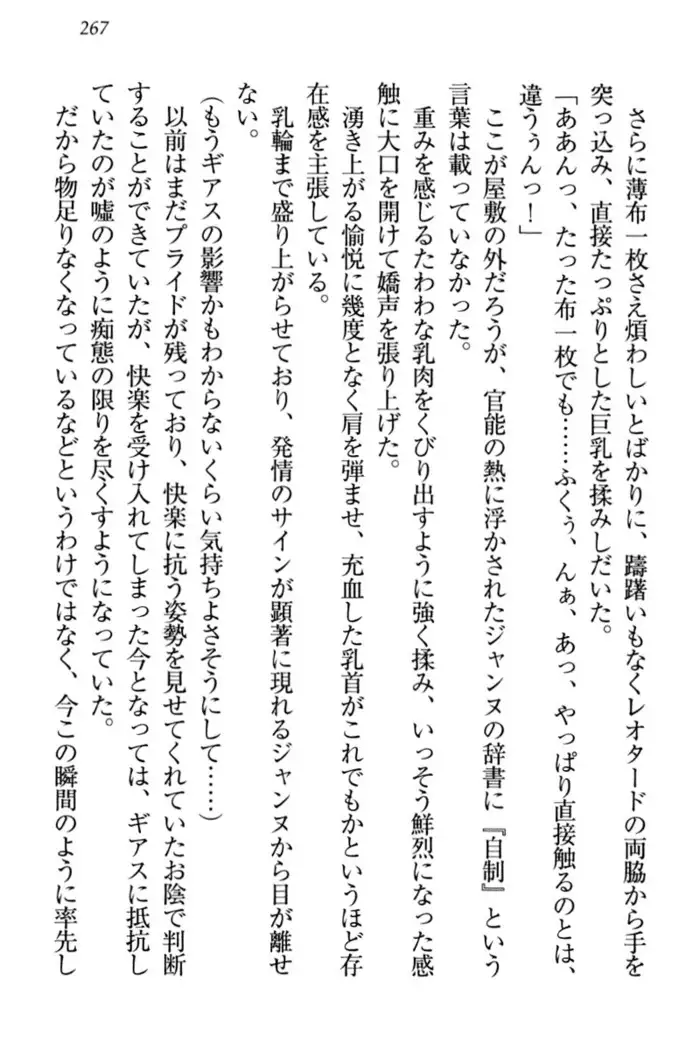 267
さらに薄布一枚さえ煩わしいとばかりに、躊躇いもなくレオタードの両脇から手を
突っ込み、直接たっぷりとした巨乳を揉みしだいた。
「ああんっ、たった布一枚でも……ふくぅ、んぁ、あっ、やっぱり直接触るのとは、
違うぅんっ！」
ここが屋敷の外だろうが、官能の熱に浮かされたジャンヌの辞書に『自制』という
言葉は載っていなかった。
重みを感じるたわわな乳肉をくびり出すように強く揉み、いっそう鮮烈になった感
触に大口を開けて嬌声を張り上げた。
湧き上がる愉悦に幾度となく肩を弾ませ、充血した乳首がこれでもかというほど存
在感を主張している。
乳輪まで盛り上がらせており、発情のサインが顕著に現れるジャンヌから目が離せ
ない。
（もうギアスの影響かもわからないくらい気持ちよさそうにして……）
以前はまだプライドが残っており、快楽に抗う姿勢を見せてくれていたお陰で判断
することができていたが、快楽を受け入れてしまった今となっては、ギアスに抵抗し
ていたのが嘘のように痴態の限りを尽くすようになっていた。
だから物足りなくなっているなどというわけではなく、今この瞬間のように率先し